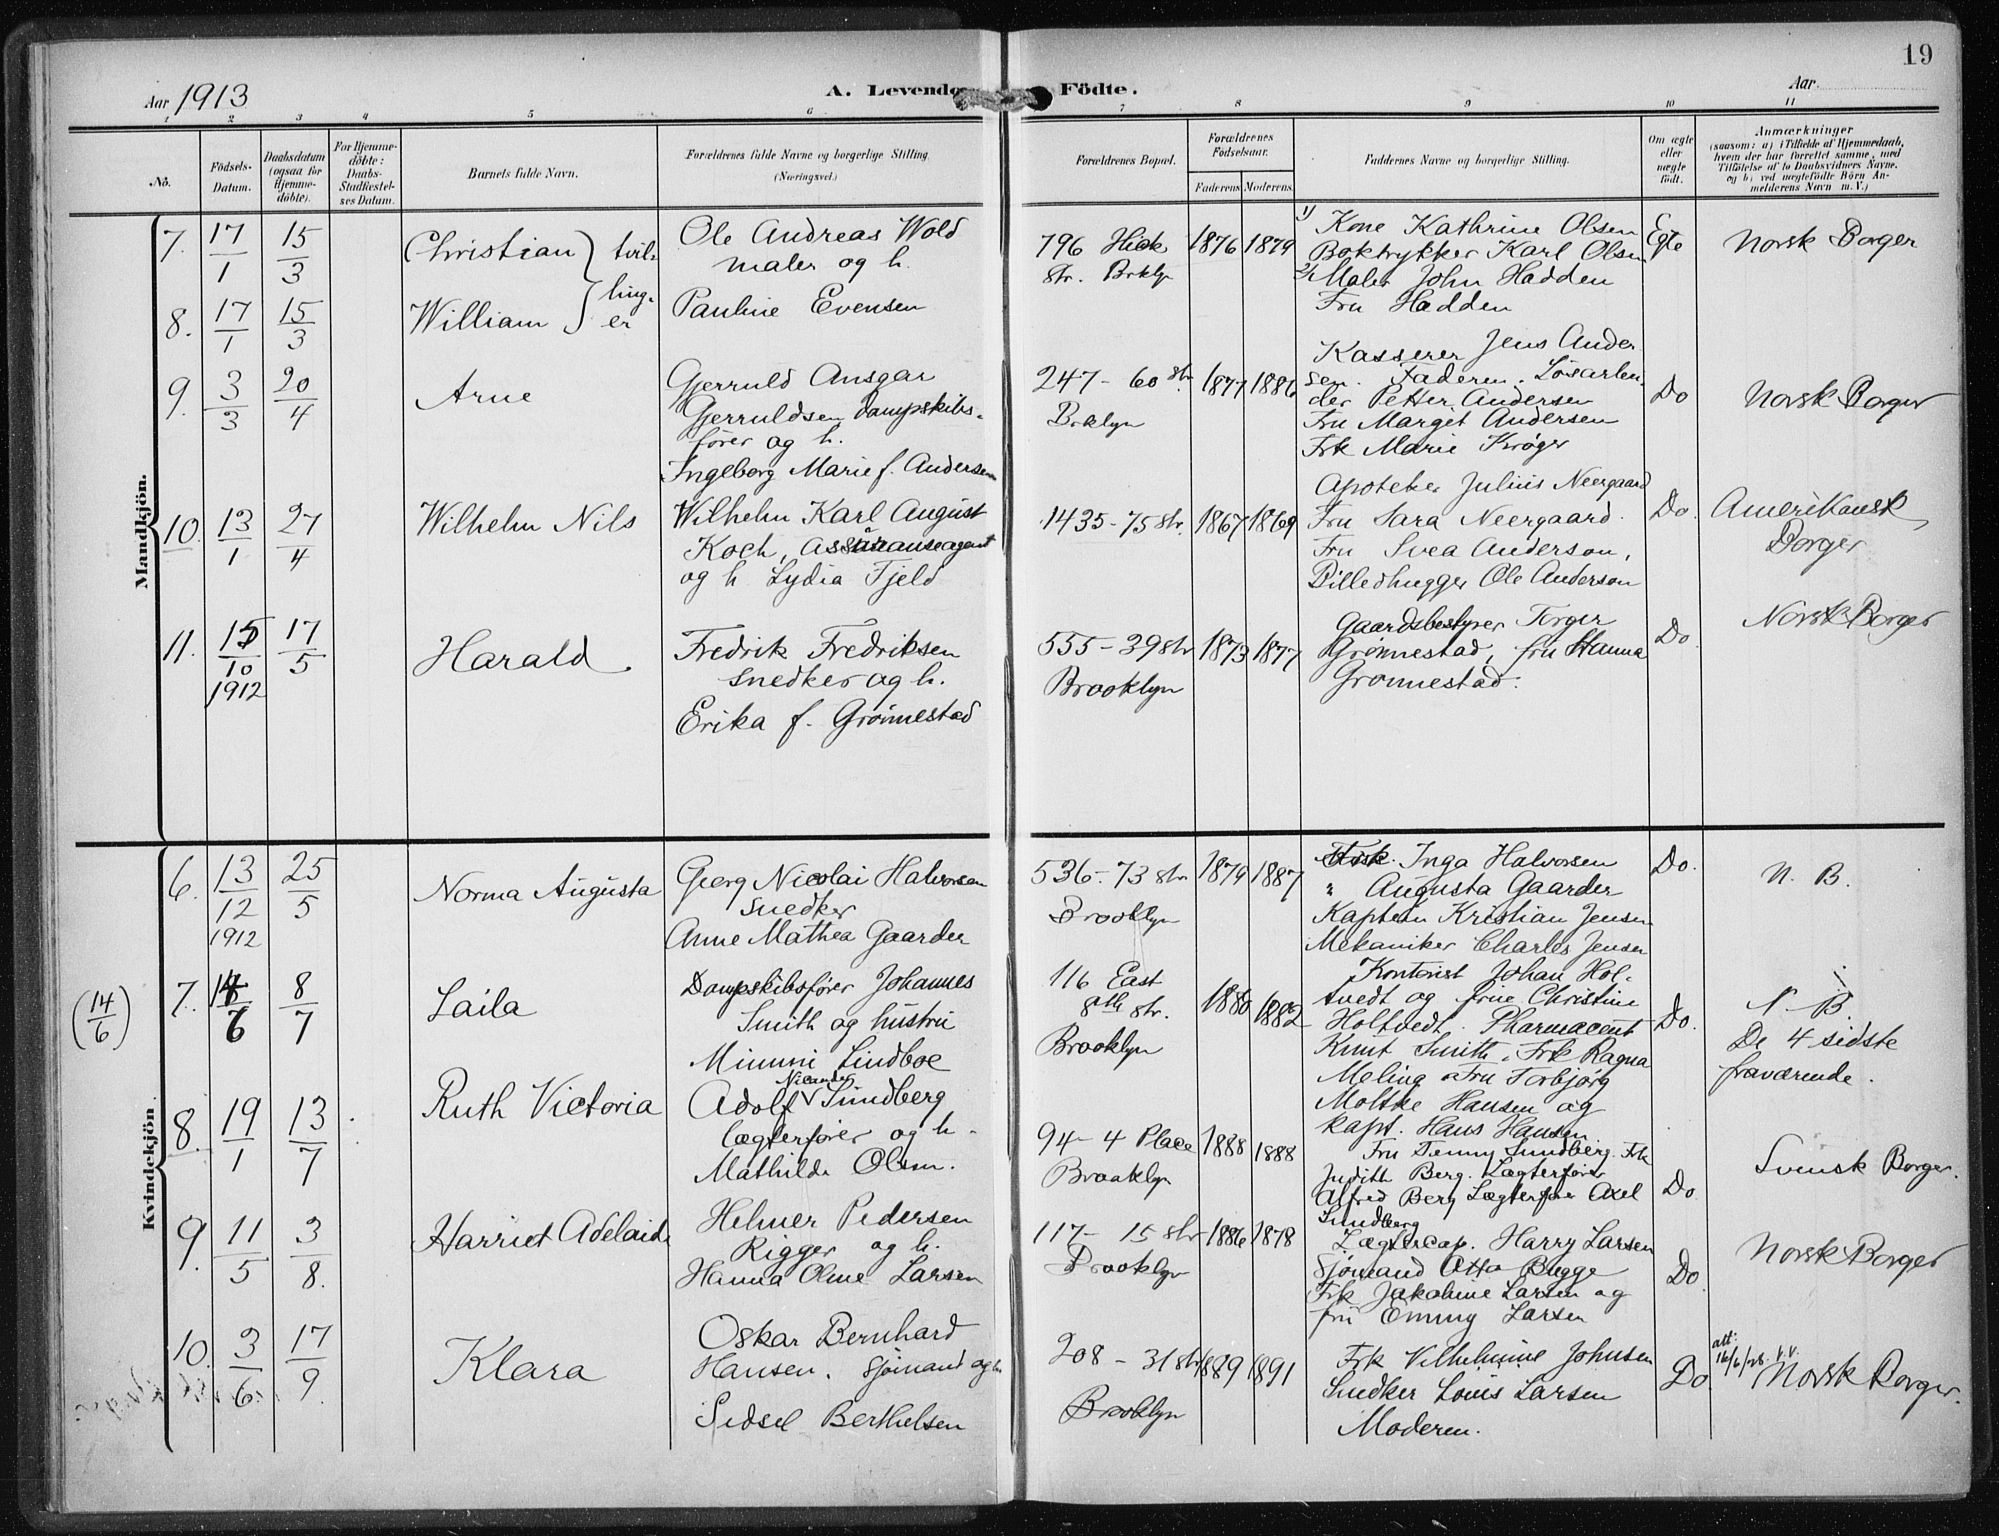 19
Aar 1913
A. Levende Födte.
Aar
1 2 3 4 5 6 7 8 9 10 11
No.
Födsels-Datum.
Daabsdatum (ogsaa for Hjemme-döbte).
For Hjemme-döbte: Daabs-Stadfæstel-ses Datum.
Barnets fulde Navn.
Forældrenes fulde Navne og borgerlige Stilling. (Næringsvei.)
Forældrenes Bopæl.
Forældrenes Födselsaar.
Faderens. Moderens.
Faddernes Navne og borgerlige Stilling.
Om ægte eller uægte födt.
Anmærkninger
(saasom: a) i Tilfælde af Hjemmedaab,
hvem der har forrettet samme, med
Tilföielse af to Daabsvidners Navne.
og b) ved uægtefödte Börn An-
melderens Navn m. V.)
Mandkjön.
7. 17/1 15/3 Christian } tvil-
8. 17/1 15/3 William } ling-er
Ole Andreas Wold
maler og h.
Pauline Evensen
796 Hick
str. Brklyn
1876 1879
1/ Kone Kathrine Olsen
Boktrykker Karl Olsen
2/ Maler John Hadden
Fru Hadden
Egte
Norsk Borger
9. 3/3 20/4 Arne
Gjerruld Ansgar
Gjerruldsen Dampskibs-
fører og h.
Ingeborg Marie f. Andersen
247 - 60 str.
Brklyn
1877 1886
Kasserer Jens Ander
sen. Faderen. Løsarbei-
der Petter Andersen
Fru Margit Andersen
Frk Marie Krøger
Do
Norsk Borger
10. 13/1 27/4 Wilhelm Nils
Wilhelm Karl August
Koch, Assuranseagent
og h. Lydia Fjeld
1435 - 75 str. 1867 1869
Apoteker Julius Neergaard
Fru Sara Neergaard.
Fru Svea Anderson,
Billedhugger Ole Anderson
Do.
Amerikansk
Borger
11. 15/10 1912 17/5 Harald
Fredrik Fredriksen
snedker og h.
Erika f. Grønnestad
555 - 39 str
Brooklyn
1873 1877
Gaardsbestyrer Torger
Grønnestad, fru Hanna
Grønnestad.
Do.
Norsk Borger
Kvindekjön
6. 13/12 1912 25/5 Norma Augusta
Georg Nicolai Halvorsen
Snedker
Anne Mathea Gaarder
536 - 73 str
Brooklyn
1879 1887
Frk. Inga Halvorsen
" Augusta Gaarder
Kaptein Kristian Jensen
Mekaniker Charles Jensen
Do.
N. B.
(14/6) 7. 14/6 8/7 Laila
Dampskibsfører Johannes
Smith og hustru
Mimmi Lindboe
116 East
8th str.
Brooklyn
1880 1882
Kontorist Johan Hol-
tvedt og frue Christine
Holtvedt. Pharmaceut
Knut Smith. Frk Ragna
Meling. Fru Torbjørg
Moltke Hansen og
kapt. Hans Hansen
Do.
N. B.
De 4 sidste
fraværende.
8. 19/1 13/7 Ruth Victoria
Adolf Nicander Sundberg
lægterfører og h.
Mathilde Olsen.
94 - 4 Place
Brooklyn
1888 1888
Fru Jenny Sundberg. Frk
Judith Berg. Lægterfører
Alfred Berg Lægterfører Axel
Sundberg
Do
Svensk Borger.
9. 11/5 3/8. Harriet Adelaide
Helmer Pedersen
Rigger og h.
Hanna Oline Larsen
117 - 15 str
Brooklyn
1886 1878
Lægtercap. Harry Larsen
Sjømand Otto Bugge
Frk Jakobine Larsen og
fru Emmy Larsen
Do
Norsk Borger
10. 3/6 17/9. Klara
Oskar Bernhard
Hansen. sjømand og h.
Sidsel Berthelsen
208 - 31 str
Brooklyn
1889 1891
Frk Vilhelmine Johnsen
Snedker Louis Larsen
Moderen.
Do.
att: 16/6/28 V.V.
Norsk Borger.